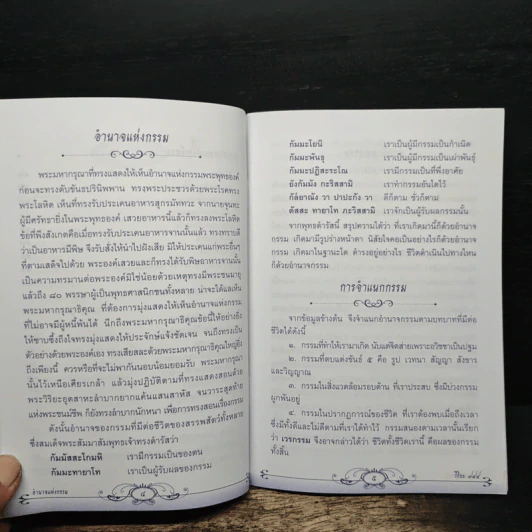 อำนาจแห่งกรรม
พระมหากรุณาที่ทรงแสดงให้เห็นอำนาจแห่งกรรมพระพุทธองค์
ก่อนจะทรงดับขันธปรินิพพาน ทรงพระประชวรด้วยพระโรคทรง
พระโลหิต เห็นที่ทรงรับประเคนอาหารสุกรมัททวะ จากนายจุนทะ
ผู้มีศรัทธายิ่งในพระพุทธองค์ เสวยอาหารนี้แล้วก็ทรงลงพระโลหิต
ข้อที่พึงสังเกตคือเมื่อทรงรับประเคนอาหารจานนั้นแล้ว ทรงทราบดี
ว่าเป็นอาหารมีพิษ จึงรับสั่งให้นำไปฝังเสีย มิให้ประเคนแก่พระอื่นๆ
ที่ตามเสด็จไปด้วย พระองค์เสวยและก็ทรงได้รับพิษอาหารจานนั้น
เป็นความทรมานต่อพระองค์มิใช่น้อยด้วยเหตุทรงมีพระชนมายุ
แล้วถึง ๘๐ พรรษาผู้เป็นพุทธศาสนิกชนทั้งหลาย น่าจะได้แลเห็น
พระมหากรุณาธิคุณ ที่ต้องการมุ่งแสดงให้เห็นอำนาจแห่งกรรม
ที่ไม่อาจมีผู้หนีพ้นได้ นึกถึงพระมหากรุณาธิคุณข้อนี้ให้อย่างยิ่ง
ให้ซาบซึ้งถึงใจทรงมุ่งแสดงให้ประจักษ์แจ้งชัดเจน จนถึงทรงเป็น
ตัวอย่างด้วยพระองค์เอง ทรงเสียสละด้วยพระมหากรุณาธิคุณใหญ่ยิ่ง
ถึงเพียงนี้ ควรหรือที่จะไม่พากันนอบน้อมยอมรับ พระมหากรุณา
นั้นไว้เหนือเศียรเกล้า แล้วมุ่งปฏิบัติตามที่ทรงแสดงสอนด้วย
พระวิริยะอุตสาหะลำบากยากแค้นแสนสาหัส จนวาระสุดท้าย
แห่งพระชนม์ชีพ ก็ยังทรงลำบากนักหนา เพื่อการทรงสอนเรื่องกรรม
ดังนั้นอำนาจของกรรมที่มีต่อชีวิตของสรรพสัตว์ทั้งหลาย
ซึ่งสมเด็จพระสัมมาสัมพุทธเจ้าทรงดำรัสว่า
กัมมัสสะโกมหิ เรามีกรรมเป็นของตน
กัมมะทายาโท เราเป็นผู้รับผลของกรรม
อำนาจแห่งกรรม ๔
กัมมะโยนิ เราเป็นผู้มีกรรมเป็นกำเนิด
กัมมะพันธุ เราเป็นผู้มีกรรมเป็นเผ่าพันธุ์
กัมมะปฏิสะระโณ เรามีกรรมเป็นที่พึ่งอาศัย
ยังกัมมัง กะริสสามิ เราทำกรรมอันใดไว้
กัล๎ยาณัง วา ปาปะกัง วา ดีก็ตาม ชั่วก็ตาม
ตัสสะ ทายาโท ภะวิสสามิ เราจักเป็นผู้รับผลกรรมนั้น
จากพุทธดำรัสนี้ สรุปความได้ว่า ที่เราเกิดมานี้ก็ด้วยอำนาจ
กรรม เกิดมามีรูปร่างหน้าตา นิสัยใจคอเป็นอย่างไรก็ด้วยอำนาจ
กรรม เกิดมาในฐานะใด ดำรงอยู่อย่างไร ชีวิตดำเนินไปทางไหน
ก็ด้วยอำนาจกรรม
การจำแนกกรรม
จากข้อมูลข้างต้น จึงจำแนกอำนาจกรรมตามบทบาทที่มีต่อ
ชีวิตได้ดังนี้
๑. กรรมที่ทำให้เรามาเกิด นับแต่จิตสายเพราะอวิชชาเป็นปฐม
๒. กรรมที่ตบแต่งขันธ์ ๕ คือ รูป เวทนา สัญญา สังขาร
และวิญญาณ
๓. กรรมในสิ่งแวดล้อมรอบด้าน ที่เราประสบ ซึ่งมีบ่วงกรรม
ผูกพันอยู่
๔. กรรมในปรากฏการณ์ของชีวิต ที่เราต้องพบเมื่อถึงเวลา
ซึ่งมีทั้งดีและไม่ดีตามที่เราได้ทำไว้ กรรมสนองตามเวลานั้นเรียก
ว่า เวรกรรม จึงอาจกล่าวได้ว่า ชีวิตทั้งชีวิตเรานี้ คือผลของกรรม
ทั้งสิ้น
๕